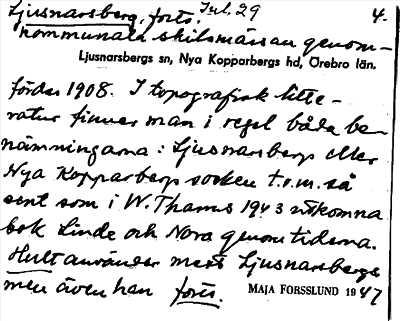 Ljusnarsberg, forts. Jul, 29 4.
kommunala skilsmässan genom-
Ljusnarsbergs sn, Nya Kopparbergs hd, Örebro län.
fördes 1908. I topografisk litte-
ratur finner man i regel båda be-
nämningarna: Ljusnarsberg eller
Nya Kopparbergs socken t.o.m. så
sent som i W. Thams 1943 utkomna
bok Linde och Nora genom tiderna.
Hult använder mest Ljusnarsbergs
men även han forts.
MAJA FORSSLUND 1947